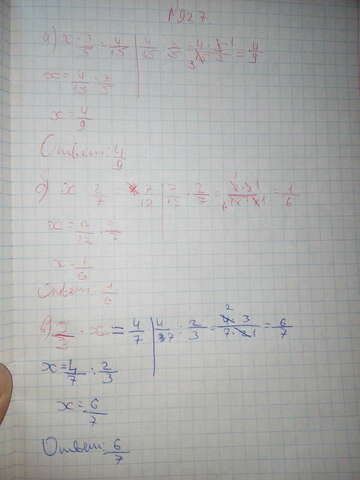 №927
а) x · 3/5 = 4/15 | 4/15 : 3/5 = 4·5 1/3 15·3 = 4/9
x = 4/15 : 3/5
x = 4/9
Ответ: 4/9
б) x 2/7 7/12 | 7/12 : 2/7 = 1/6
x = 7/12 : 2/7
x = 1/6
Ответ: 1/6
в) 2/3 · x = 4/7 | 4/7 : 2/3 = 4·3/7·2 = 6/7
x = 4/7 : 2/3
x = 6/7
Ответ: 6/7